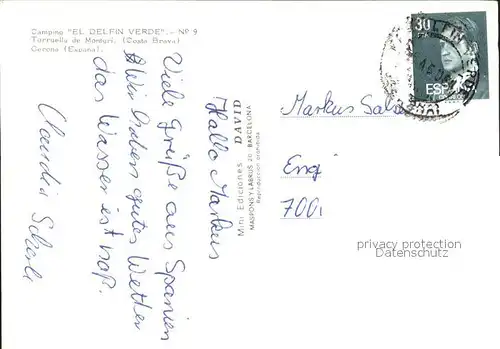 Camping "EL DELFIN VERDE".- Nº 9
Torruella de Montgri. (Costa Brava)
Gerona (España).
Hallo Markus
Viele Grüße aus Spanien
Wir haben gutes Wetter
das Wasser ist naß.
Claudia
Mini Ediciones DAVID
MASPONS Y LABROS 20 BARCELONA
Reproducción prohibida
30
ESPAÑA
Markus
Engi
privacy protection
Datenschutz